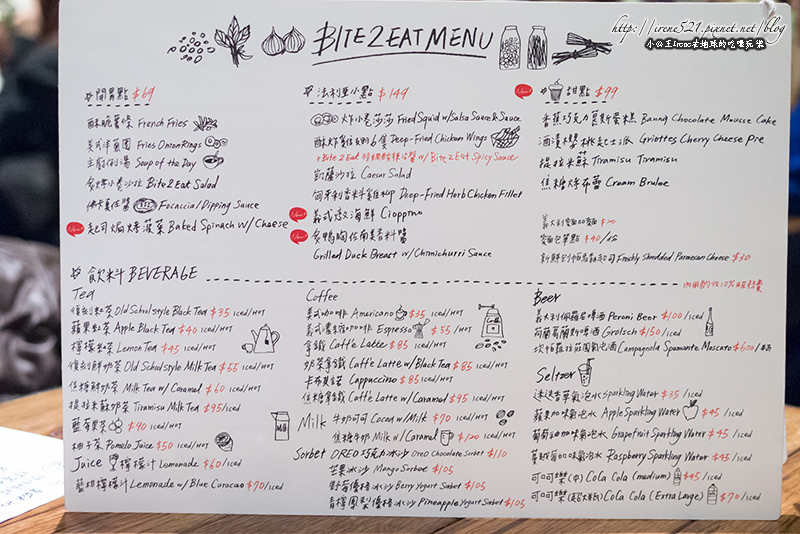 http://irene521.pixnet.net/blog
小公主Irene去地球的吃喝玩樂
BITE 2 EAT MENU
開胃點 $69
酥脆薯條 French Fries
美式洋蔥圈 Fries Onion Rings
主廚例湯 Soup of the Day
炙烤小卷沙拉 Bite 2 Eat Salad
佛卡夏佐醬 Focaccia/Dipping Sauce
起司焗烤菠菜 Baked Spinach w/ Cheese
法利亞小點 $149
炸小卷莎莎 Fried Squid w/ Salsa Sauce & Sauce
酥炸雞翅6隻 Deep-Fried Chicken Wings
w/ Bite 2 Eat Spicy Sauce
凱薩沙拉 Caesar Salad
匈牙利香料雞柳 Deep-Fried Herb Chicken Fillet
義式燉海鮮 Cioppino
炙鴨胸佐南美香料醬
Grilled Duck Breast w/ Chimichurri Sauce
甜點 $99
香蕉巧克力慕斯蛋糕 Banna Chocolate Mousse Cake
酒漬櫻桃起士派 Griottes Cherry Cheese Pie
提拉米蘇 Tiramisu Tiramisu
焦糖烤布蕾 Cream Brulee
義大利麵加麵 $20
麵包單點 $40/4片
新鮮刨帕馬森起司 Freshly Shredded Parmesan Cheese $30
內用酌收10%服務費
飲料 BEVERAGE
Tea
復刻紅茶 Old School style Black Tea $35 iced/HOT
蘋果紅茶 Apple Black Tea $40 iced/HOT
檸檬紅茶 Lemon Tea $45 iced/HOT
復刻鮮奶茶 Old School style Milk Tea $55 iced/HOT
焦糖鮮奶茶 Milk Tea w/ Caramel $60 iced/HOT
提拉米蘇奶茶 Tiramisu Milk Tea $95/iced
藍莓果茶 $90/HOT
柚子茶 Pomelo Juice $50 iced/HOT
Juice 檸檬汁 Lemonade $60/iced
藍柑檸檬汁 Lemonade w/ Blue Curacao $70/iced
Coffee
美式咖啡 Americano $35 iced/HOT
義式濃縮咖啡 Espresso $55/HOT
拿鐵 Caffè Latte $85 iced/HOT
奶茶拿鐵 Caffè Latte w/ Black Tea $85 iced/HOT
卡布其諾 Cappuccino $85 iced/HOT
焦糖拿鐵 Caffè Latte w/ Caramel $95 iced/HOT
Milk 牛奶可可 Cocoa w/ Milk $70 iced/HOT
焦糖牛奶 Milk w/ Caramel $120 iced/HOT
Sorbet OREO巧克力冰沙 Oreo Chocolate Sorbet $110
芒果冰沙 Mango Sorbet $105
野莓優格冰沙 Berry Yogurt Sorbet $105
青檸鳳梨優格冰沙 Pineapple Yogurt Sorbet $105
Beer
義大利佩羅尼啤酒 Peroni Beer $100/iced
荷蘭葛蘭斯啤酒 Grolsch $150/iced
坎帕羅拉莊園氣泡酒 Campagnola Spumante Moscato $600/瓶
Seltzer
迷迭香草氣泡水 Sparkling Water $35/iced
蘋果加味氣泡水 Apple Sparkling Water $45/iced
葡萄柚加味氣泡水 Grapefruit Sparkling Water $45/iced
蔓越莓加味氣泡水 Raspberry Sparkling Water $45/iced
可口可樂(中) Coca Cola (medium) $45/iced
可口可樂(超大瓶) Coca Cola (Extra Large) $70/iced